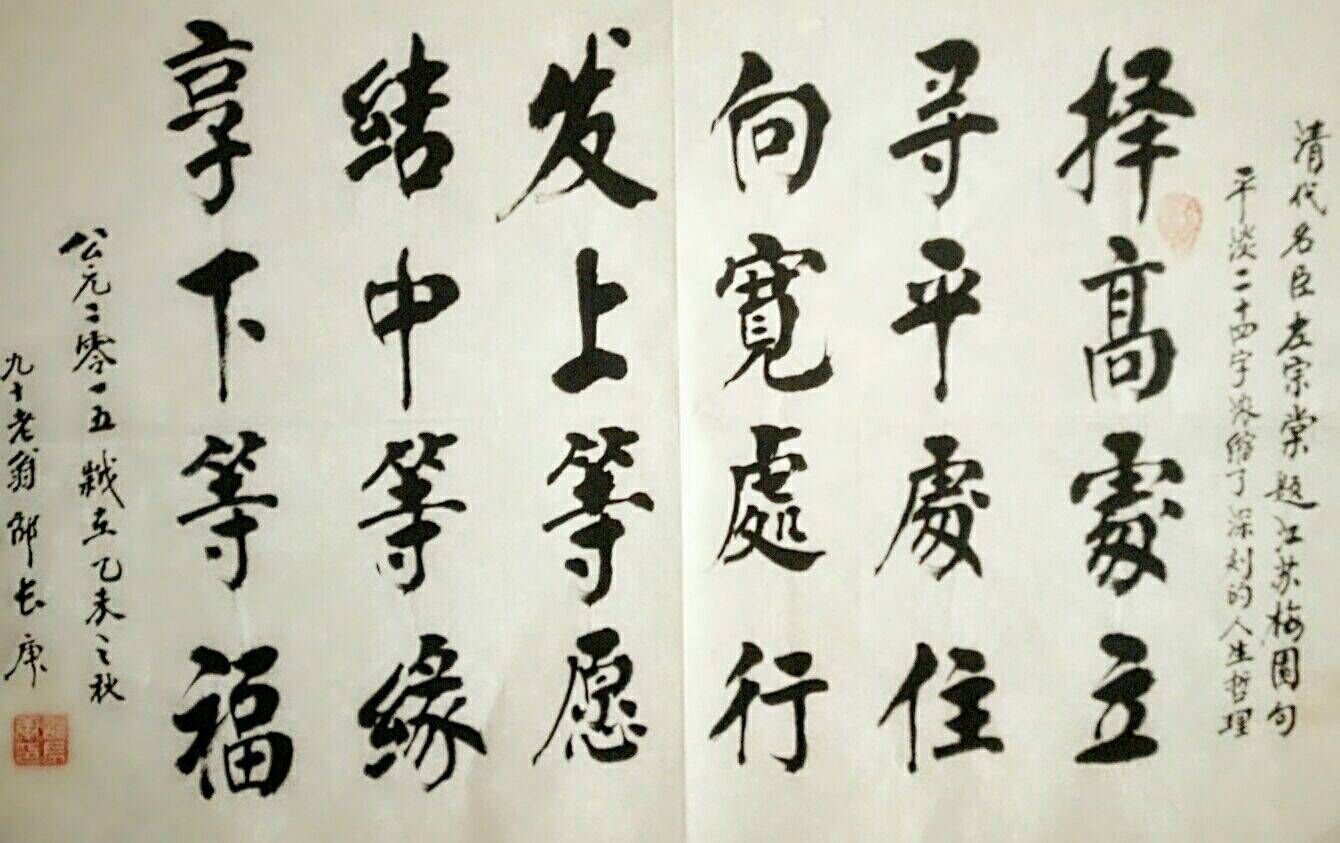 清代名臣左宗棠题江苏梅園句
平淡二十四字浓缩了深刻的人生哲理
择高處立
寻平處住
向寬處行
发上等愿
结中等缘
享下等福
公元二零一五歲在乙未之秋
九十老翁邵长庚